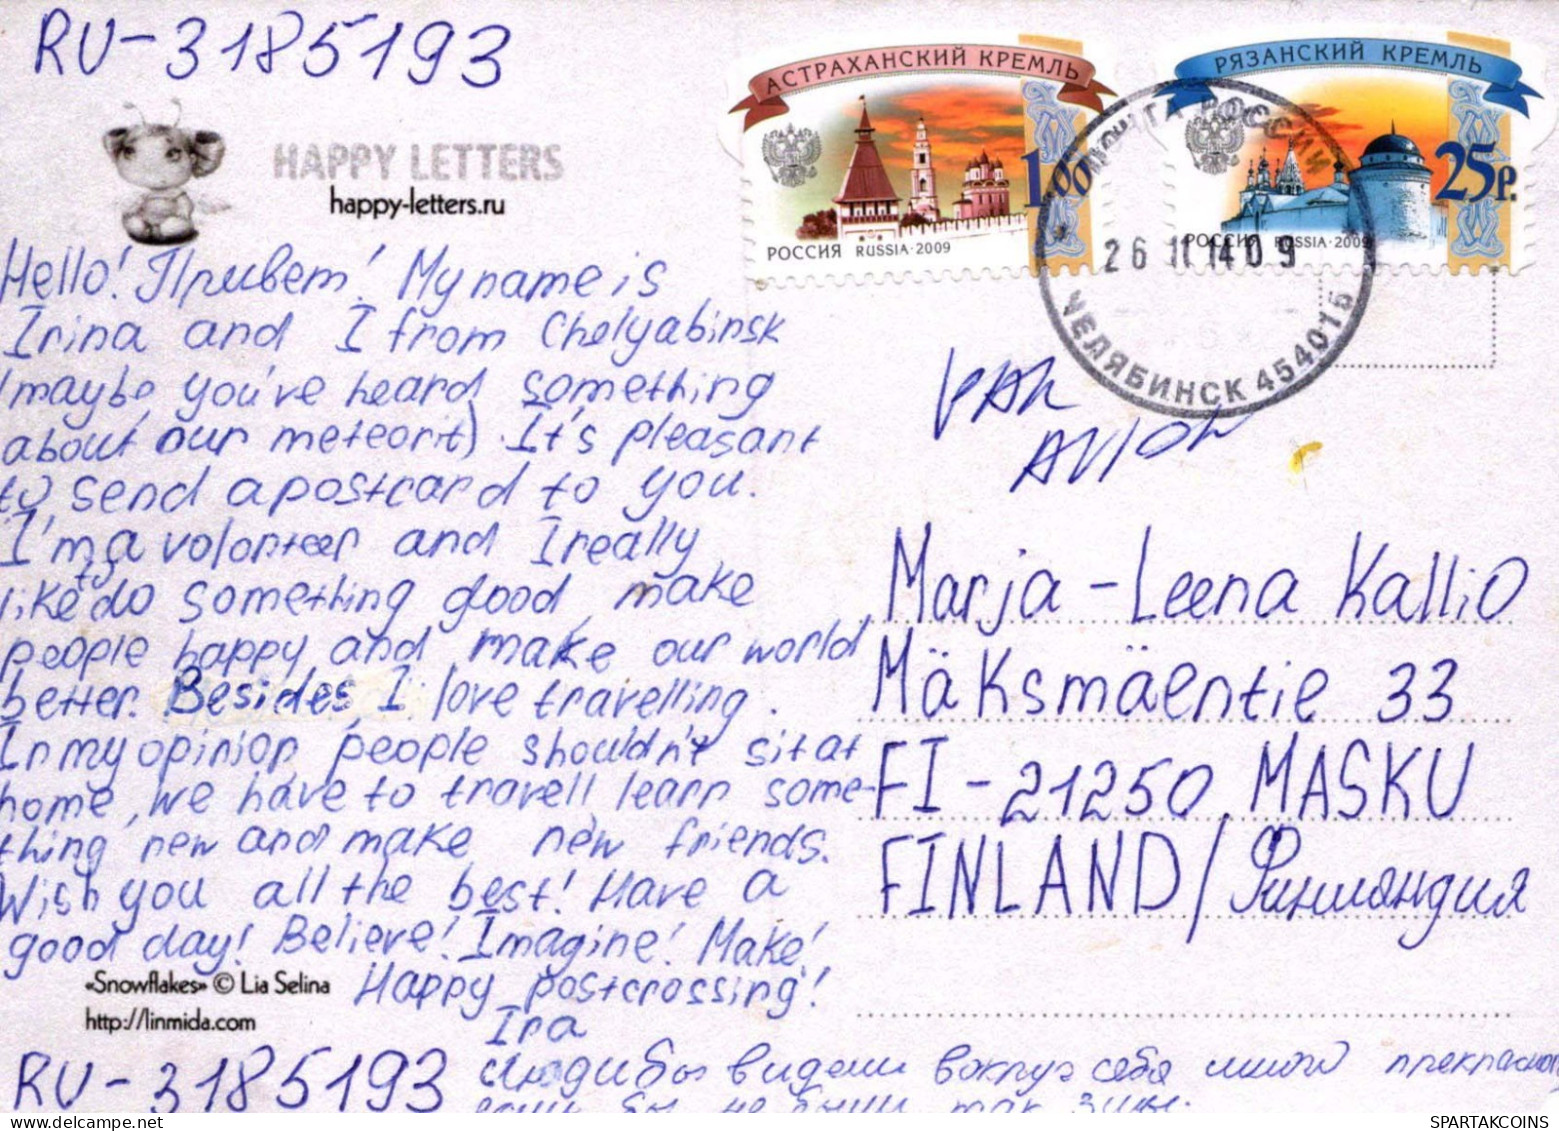 RU-3185193
HAPPY LETTERS
happy-letters.ru
АСТРАХАНСКИЙ КРЕМЛЬ
1.00
РОССИЯ RUSSIA·2009
РЯЗАНСКИЙ КРЕМЛЬ
25р.
РОССИЯ RUSSIA·2009
ПОЧТА РОССИИ
26 11 14 09
ЧЕЛЯБИНСК 454015
Hello! Привет! My name is
Irina and I from Chelyabinsk
(maybe you've heard something
about our meteorit). It's pleasant
to send a postcard to you.
I'm a volonteer and I really
like to do something good, make
people happy and make our world
better. Besides, I love travelling.
In my opinion people shouldn't sit at
home, we have to travell learn some-
thing new and make new friends.
Wish you all the best! Have a
good day! Believe! Imagine! Make!
Happy postcrossing!
Ira
«Snowflakes» © Lia Selina
http://linmida.com
RU-3185193
Люди бы видели вокруг себя много прекрасного,
если бы не были так злы.
PAR
AVION
Marja-Leena Kallio
Mäksmäentie 33
FI-21250 MASKU
FINLAND/Финляндия
SPARTAKCOINS